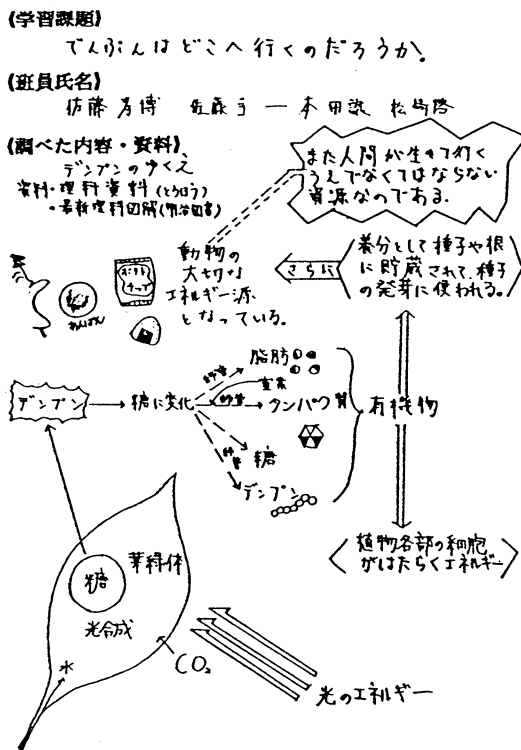 《学習課題》
でんぷんはどこへ行くのだろうか。
《班員氏名》
《調べた内容・資料》
デンプンのゆくえ
資料・理科資料(とうほう)
・最新理科図解(明治図書)
また人間が生きて行く
うえでなくてはならない
資源なのである。
動物の
大切な
エネルギー源
となっている。
さらに
養分として種子や根
に貯蔵されて、種子
の発芽に使われる。
あんぱん
デンプン
糖に変化
脂肪
窒素
タンパク質
糖
デンプン
有機物
植物各部の細胞
がはたらくエネルギー
葉緑体
糖
光合成
水
CO₂
光のエネルギー